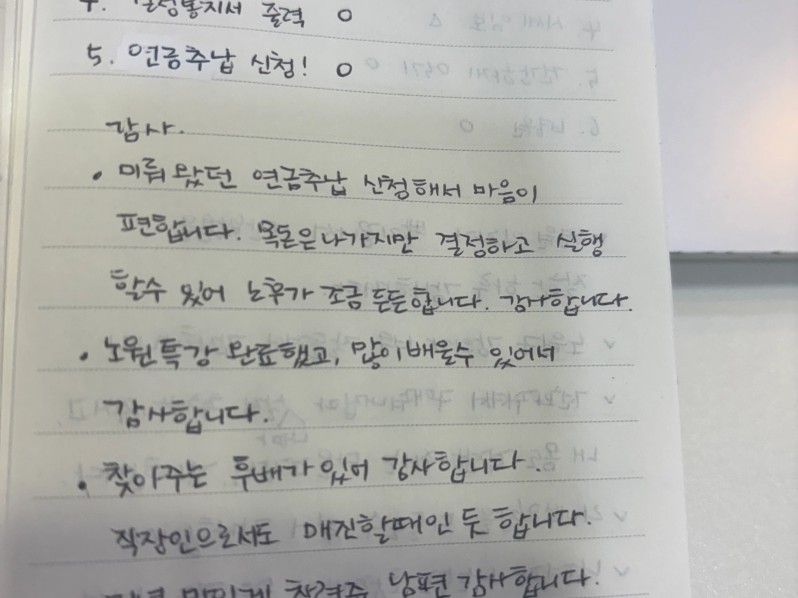 출력 O
5. 연금추납 신청! O
감사.
• 미뤄 왔던 연금추납 신청해서 마음이
편합니다. 목돈은나가지만 결정하고 실행
할수 있어 노후가 조금 든든합니다. 감사합니다.
• 노원특강 완료했고, 많이배울수 있어서
감사합니다.
• 찾아주는 후배가 있어 감사합니다.
직장인으로서도 매진할때인 듯 합니다.
남편 감사합니다.